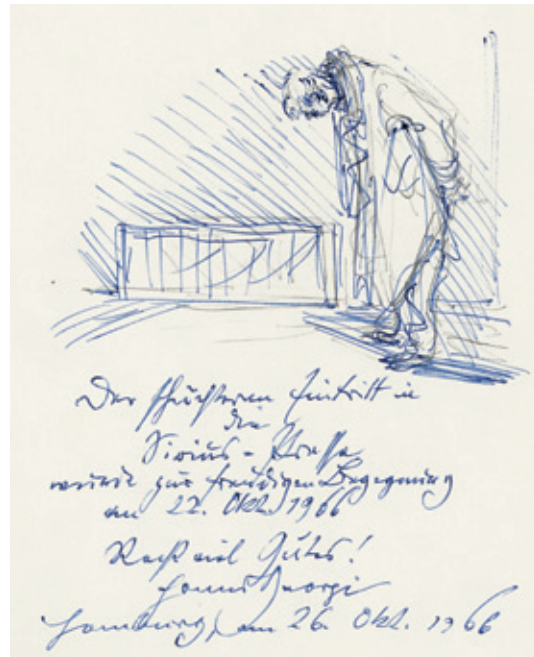 Der schüchterne Eintritt in
die
Sirius-Strasse
wurde zur freudigen Begegnung
am 22. Okt. 1966
Recht viel Gutes!
Hanns Georgi
Hamburg, am 26. Okt. 1966